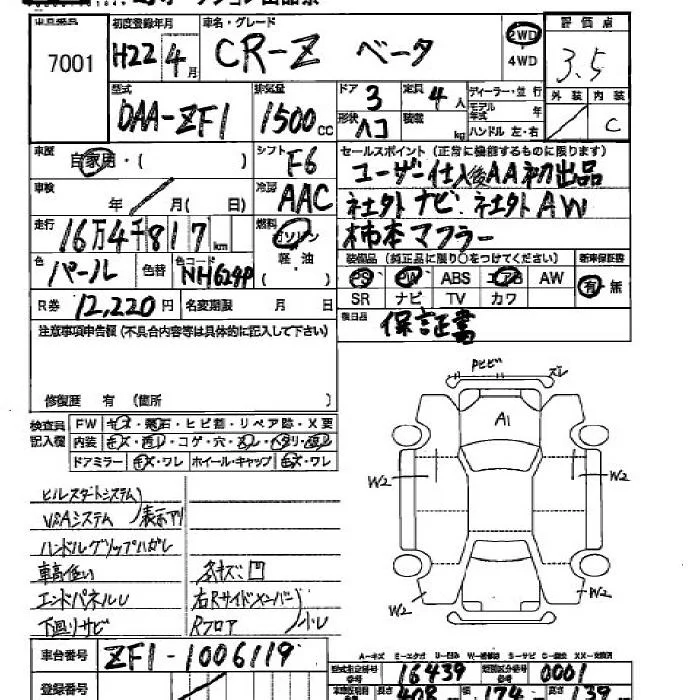 出品番号 7001
初度登録年月 H22年4月
車名・グレード CR-Z ベータ
2WD
4WD
評価点 3.5
型式 DAA-ZF1
排気量 1500cc
ドア 3
定員 4人
形状 ハコ
積載 kg
ディーラー・並行
モデル年式 年
ハンドル 左・右
外装 内装
C
車歴 自家用・( )
シフト F6
車検 年 月( 日)
冷房 AAC
セールスポイント(正常に機能するものに限ります)
ユーザー仕入後AA初出品
社外ナビ 社外AW
柿本マフラー
走行 16万4千817km
燃料 ガソリン
軽・油
( )
色 パール
色替
色コード NH624P
装備品(純正品に限り○をつけてください) 新車保証書
PS PW ABS エアB AW 有・無
SR ナビ TV カワ
R券 12,220円
名変期限 月 日
後日品 保証書
注意事項申告欄(不具合内容等は具体的に記入して下さい)
修復歴 有(箇所
検査員記入欄
FW キズ・飛石・ヒビ割・リペア跡・X要
内装
ドアミラー キズ・ワレ ホイール・キャップ キズ・ワレ
Pヒビ ズレ
A1
W2 W2
W2 W2
ヒルスタートシステム
VSAシステム 表示アリ
ハンドルグリップハガレ
車高低い
各キズ凹
エンドパネルU
右Rサイドメンバー
下回りサビ
Rフロア 小レ
車台番号 ZF1-1006119
登録番号
型式指定番号 16439
類別区分番号 0001
長さ 408 幅 174 高さ 139